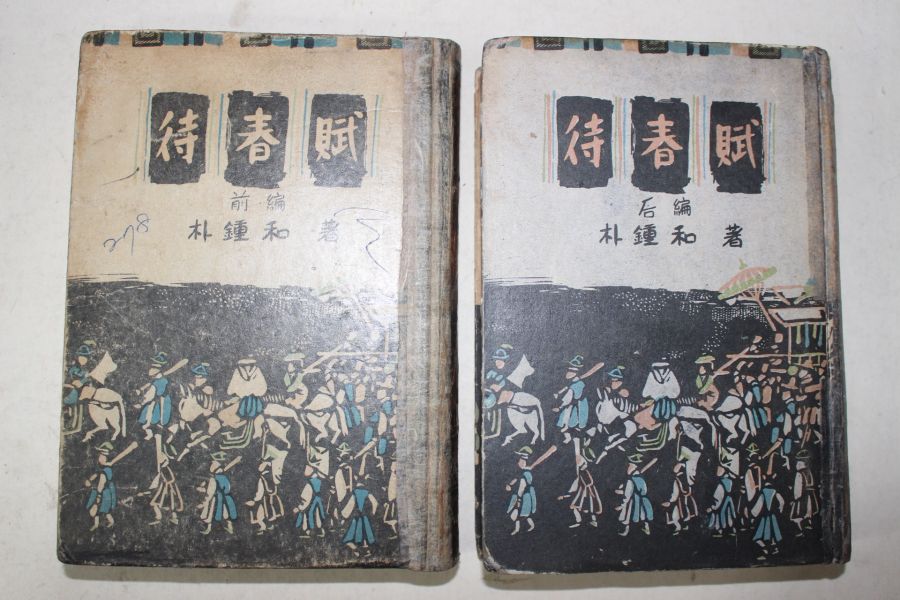 待春賦
前編
朴鍾和 著
待春賦
后編
朴鍾和 著